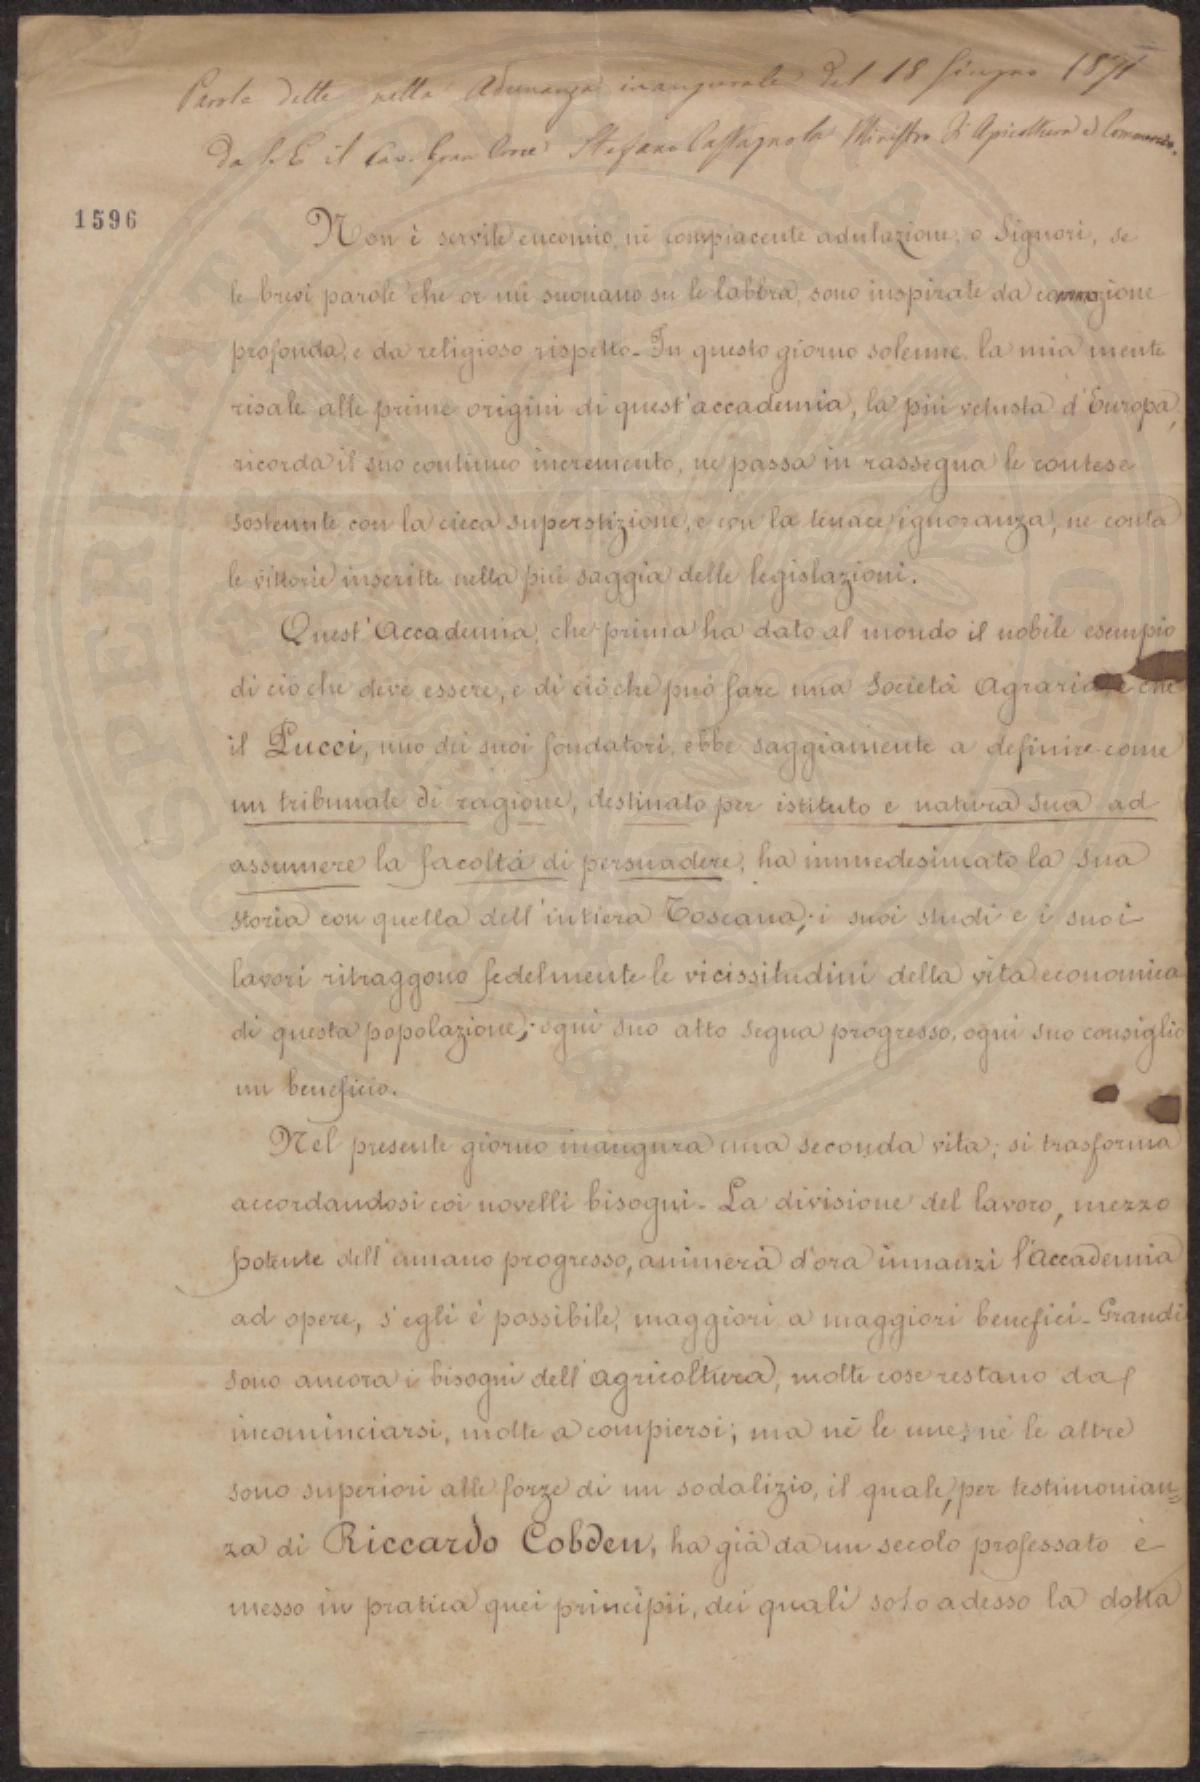 Parole dette nella Adunanza inaugurale del 18 Giugno 1871
Da S. E. il Cav. Gran Croce Stefano Castagnola Ministro d'Agricoltura e Commercio.
1596
Non è servile encomio, nè compiacente adulazione, o Signori, se
le brevi parole che or mi suonano su le labbra, sono inspirate da commozione
profonda, e da religioso rispetto. In questo giorno solenne, la mia mente
risale alle prime origini di quest'accademia, la più vetusta d'Europa,
ricorda il suo continuo incremento, ne passa in rassegna le contese
sostenute con la cieca superstizione, e con la tenace ignoranza, ne conta
le vittorie inscritte nella più saggia delle legislazioni.
Quest'Accademia, che prima ha dato al mondo il nobile esempio
di ciò che deve essere, e di ciò che può fare una Società Agraria, e che
il Pucci, uno dei suoi fondatori, ebbe saggiamente a definire come
un tribunale di ragione, destinato per istituto e natura sua ad
assumere la facoltà di persuadere, ha immedesimato la sua
storia con quella dell'intiera Toscana; i suoi studi e i suoi
lavori ritraggono fedelmente le vicissitudini della vita economica
di questa popolazione; ogni suo atto segna progresso, ogni suo consiglio
un beneficio.
Nel presente giorno inaugura una seconda vita; si trasforma
accordandosi coi novelli bisogni. La divisione del lavoro, mezzo
potente dell'umano progresso, animerà d'ora innanzi l'Accademia
ad opere, s'egli è possibile, maggiori a maggiori benefici. Grandi
sono ancora i bisogni dell'agricoltura, molte cose restano da
incominciarsi, molte a compiersi; ma nè le une, nè le altre
sono superiori alle forze di un sodalizio, il quale, per testimonian=
za di Riccardo Cobden, ha già da un secolo professato e
messo in pratica quei principii, dei quali solo adesso la dotta